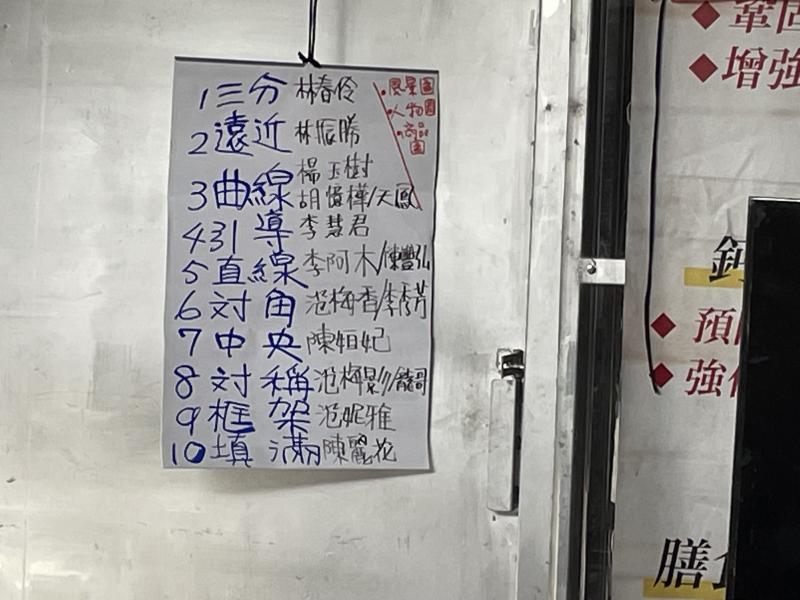 1 三分 林春伶
2 遠近 林振勝
3 曲線 楊玉樹
胡懷樺/天鳳
4 31 導 李慧君
5 直線 李阿木/陳豐弘
6 対角 范梅香/李秀芳
7 中央 陳姮妃
8 対稱 范梅影/龍哥
9 框架 范妮雅
10 填滿 陳麗花
•風景圖
•人物圖
•商品
圖
◆鞏固
◆增強
鈣
◆預防
◆強化
膳食